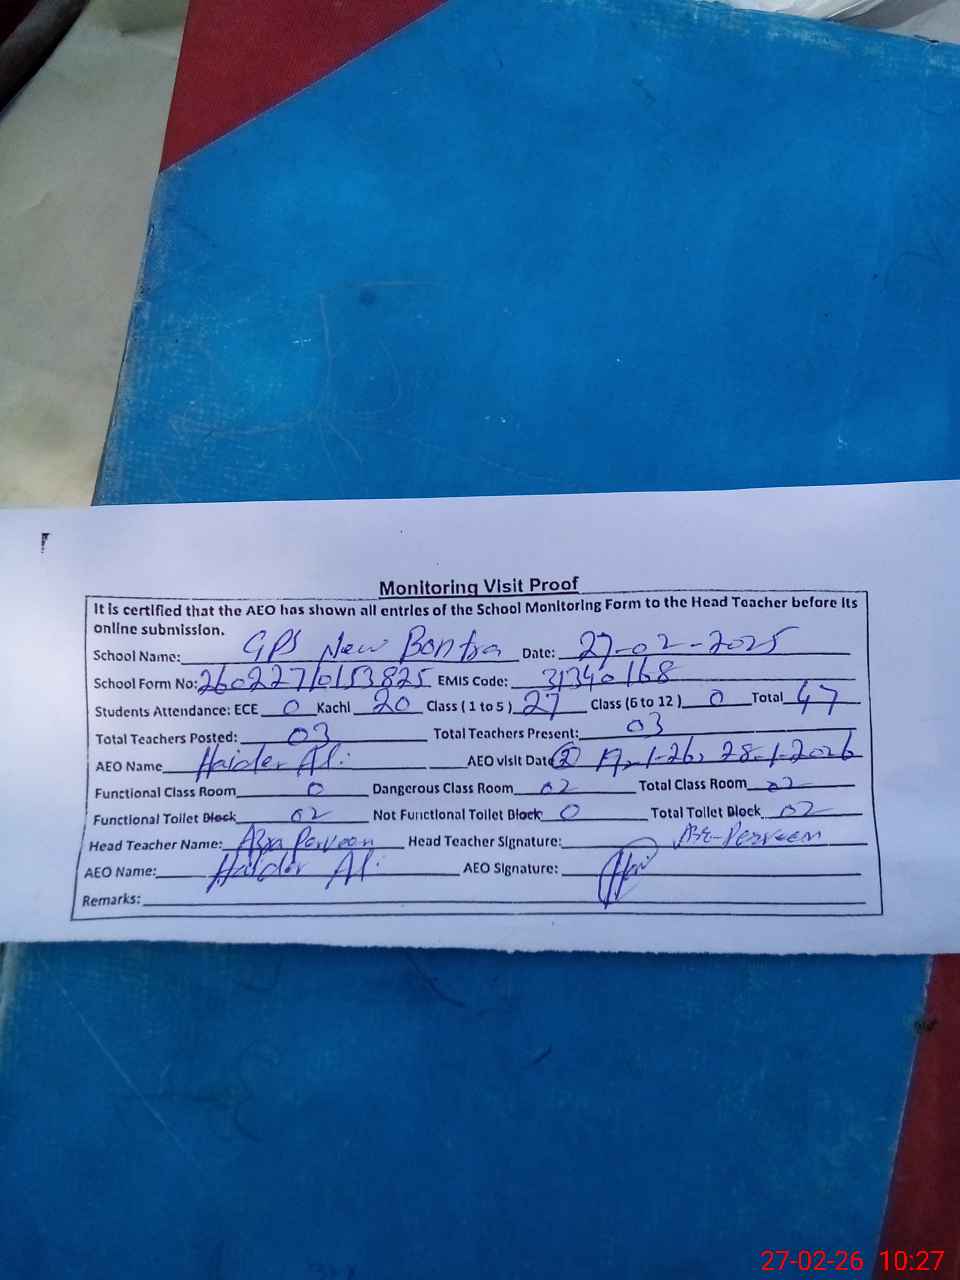 Monitoring Visit Proof
It is certified that the AEO has shown all entries of the School Monitoring Form to the Head Teacher before its
online submission.
School Name: GPS New Date: 27-02-2025
School Form No: 260227/0153825 EMIS Code: 31340168
Students Attendance: ECE 0 Kachi 20 Class ( 1 to 5 ) 27 Class (6 to 12 ) 0 Total 47
Total Teachers Posted: 03 Total Teachers Present: 03
AEO Name Haider Ali AEO visit Date 2 28-1-2026
Functional Class Room 0 Dangerous Class Room 02 Total Class Room 02
Functional Toilet Block 02 Not Functional Toilet Block 0 Total Toilet Block 02
Head Teacher Name: Perveen Head Teacher Signature: Perveen
AEO Name: Haider Ali AEO Signature:
Remarks:
27-02-26 10:27